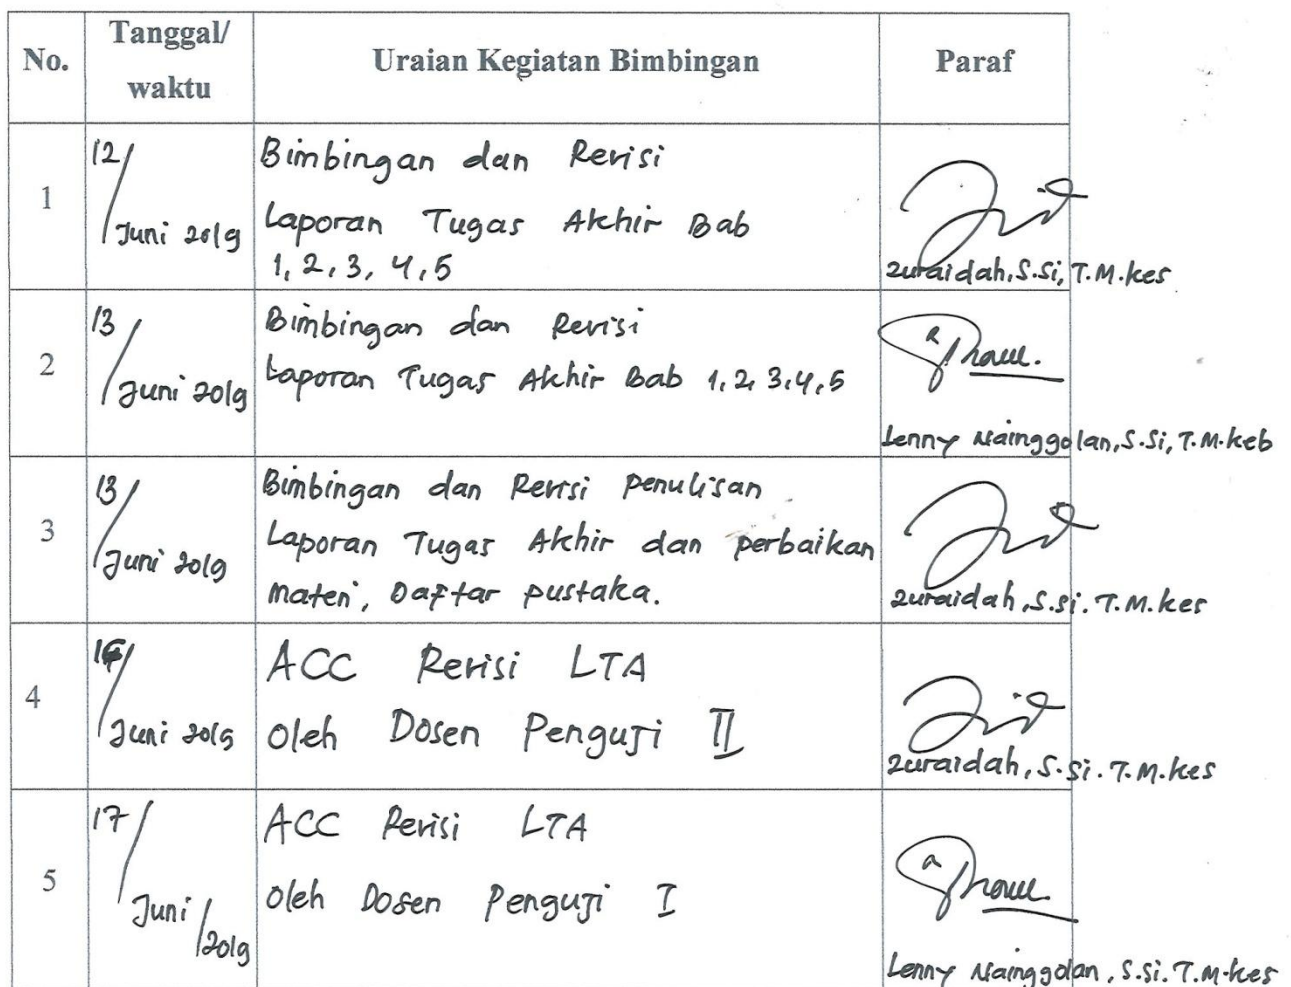 No.
Tanggal/
waktu
Uraian Kegiatan Bimbingan
Paraf
1
12/
Juni 2019
Bimbingan dan Revisi
Laporan Tugas Akhir Bab
1, 2, 3, 4, 5
Zuraidah, S.Si, T.M.kes
2
13/
Juni 2019
Bimbingan dan Revisi
Laporan Tugas Akhir Bab 1, 2, 3, 4, 5
Lenny Nainggolan, S.Si, T.M.keb
3
13/
Juni 2019
Bimbingan dan Revisi penulisan
Laporan Tugas Akhir dan perbaikan
materi, Daftar pustaka.
Zuraidah, S.Si. T.M.kes
4
Juni 2019
ACC Revisi LTA
Oleh Dosen Penguji II
Zuraidah, S.Si. T.M.kes
5
17/
Juni/
2019
ACC Revisi LTA
Oleh Dosen Penguji I
Lenny Nainggolan, S.Si. T.M.kes